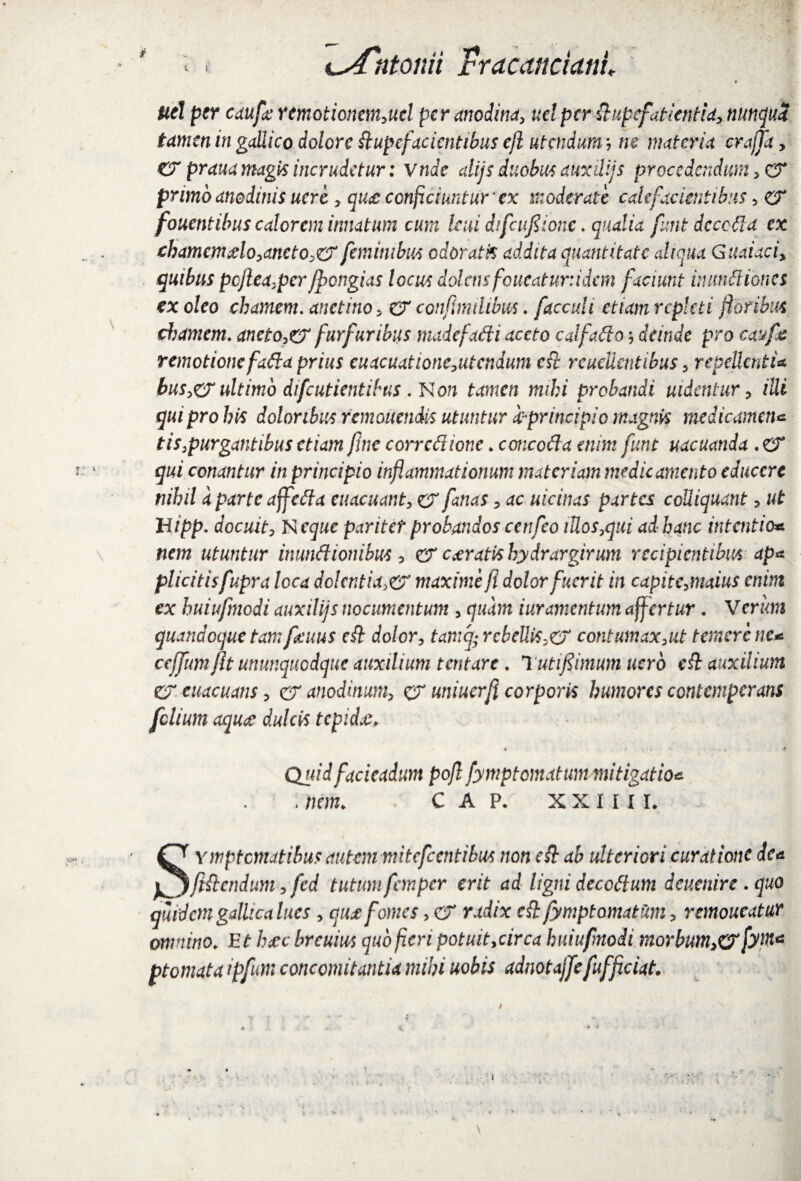 Antonii Fracanciani.
uel per causæ remotionem,uel per anodina, uel per stupefatientia, nunquā
tamen in gallico dolore stupefacientibus est utendum; ne materia crassa,
& praua magis incrudetur: Vnde alijs duobus auxilijs procedendum, &
primò anodinis uerè, quæ conficiuntur ex moderatè calefacientibus, &
fouentibus calorem innatum cum leui discussione. qualia sunt decocta ex
chamemælo,aneto,& seminibus odoratis addita quantitate aliqua Guaiaci,
quibus postea,per spongias locus dolens foueatur:idem faciunt inunctiones
ex oleo chamem. anetino, & consimilibus. sacculi etiam repleti floribus
chamem. aneto,& furfuribus madefacti aceto calfacto; deinde pro causæ
remotione facta prius euacuatione,utendum est reuellentibus, repellenti=
bus,& ultimò discutientibus. Non tamen mihi probandi uidentur, illi
qui pro his doloribus remouendis utuntur à principio magnis medicamen=
tis,purgantibus etiam sine correctione. concocta enim sunt uacuanda. &
qui conantur in principio inflammationum materiam medicamento educere
nihil à parte affecta euacuant, & sanas, ac uicinas partes colliquant, ut
Hipp. docuit, Neque pariter probandos censeo illos,qui ad hanc intentio=
nem utuntur inunctionibus, & cæratis hydrargirum recipientibus ap=
plicitis supra loca dolentia,& maximè si dolor fuerit in capite,maius enim
ex huiusmodi auxilijs nocumentum, quàm iuramentum affertur. Verùm
quandoque tam sæuus est dolor, tamq; rebellis,& contumax,ut temerè ne=
cessum sit ununquodque auxilium tentare. Tutissimum uerò est auxilium
& euacuans, & anodinum, & uniuersi corporis humores contemperans
solium aquæ dulcis tepidæ.
Quid facieadum post symptomatum mitigatio=
nem. CAP. XXIIII.
Symptomatibus autem mitescentibus non est ab ulteriori curatione de=
sistendum, sed tutum semper erit ad ligni decoctum deuenire. quo
quidem gallica lues, quæ fomes, & radix est symptomatùm, remoueatur
omnino. Et hæc breuius quò fieri potuit,circa huiusmodi morbum,& sym=
ptomata ipsum concomitantia mihi uobis adnotasse sufficiat.